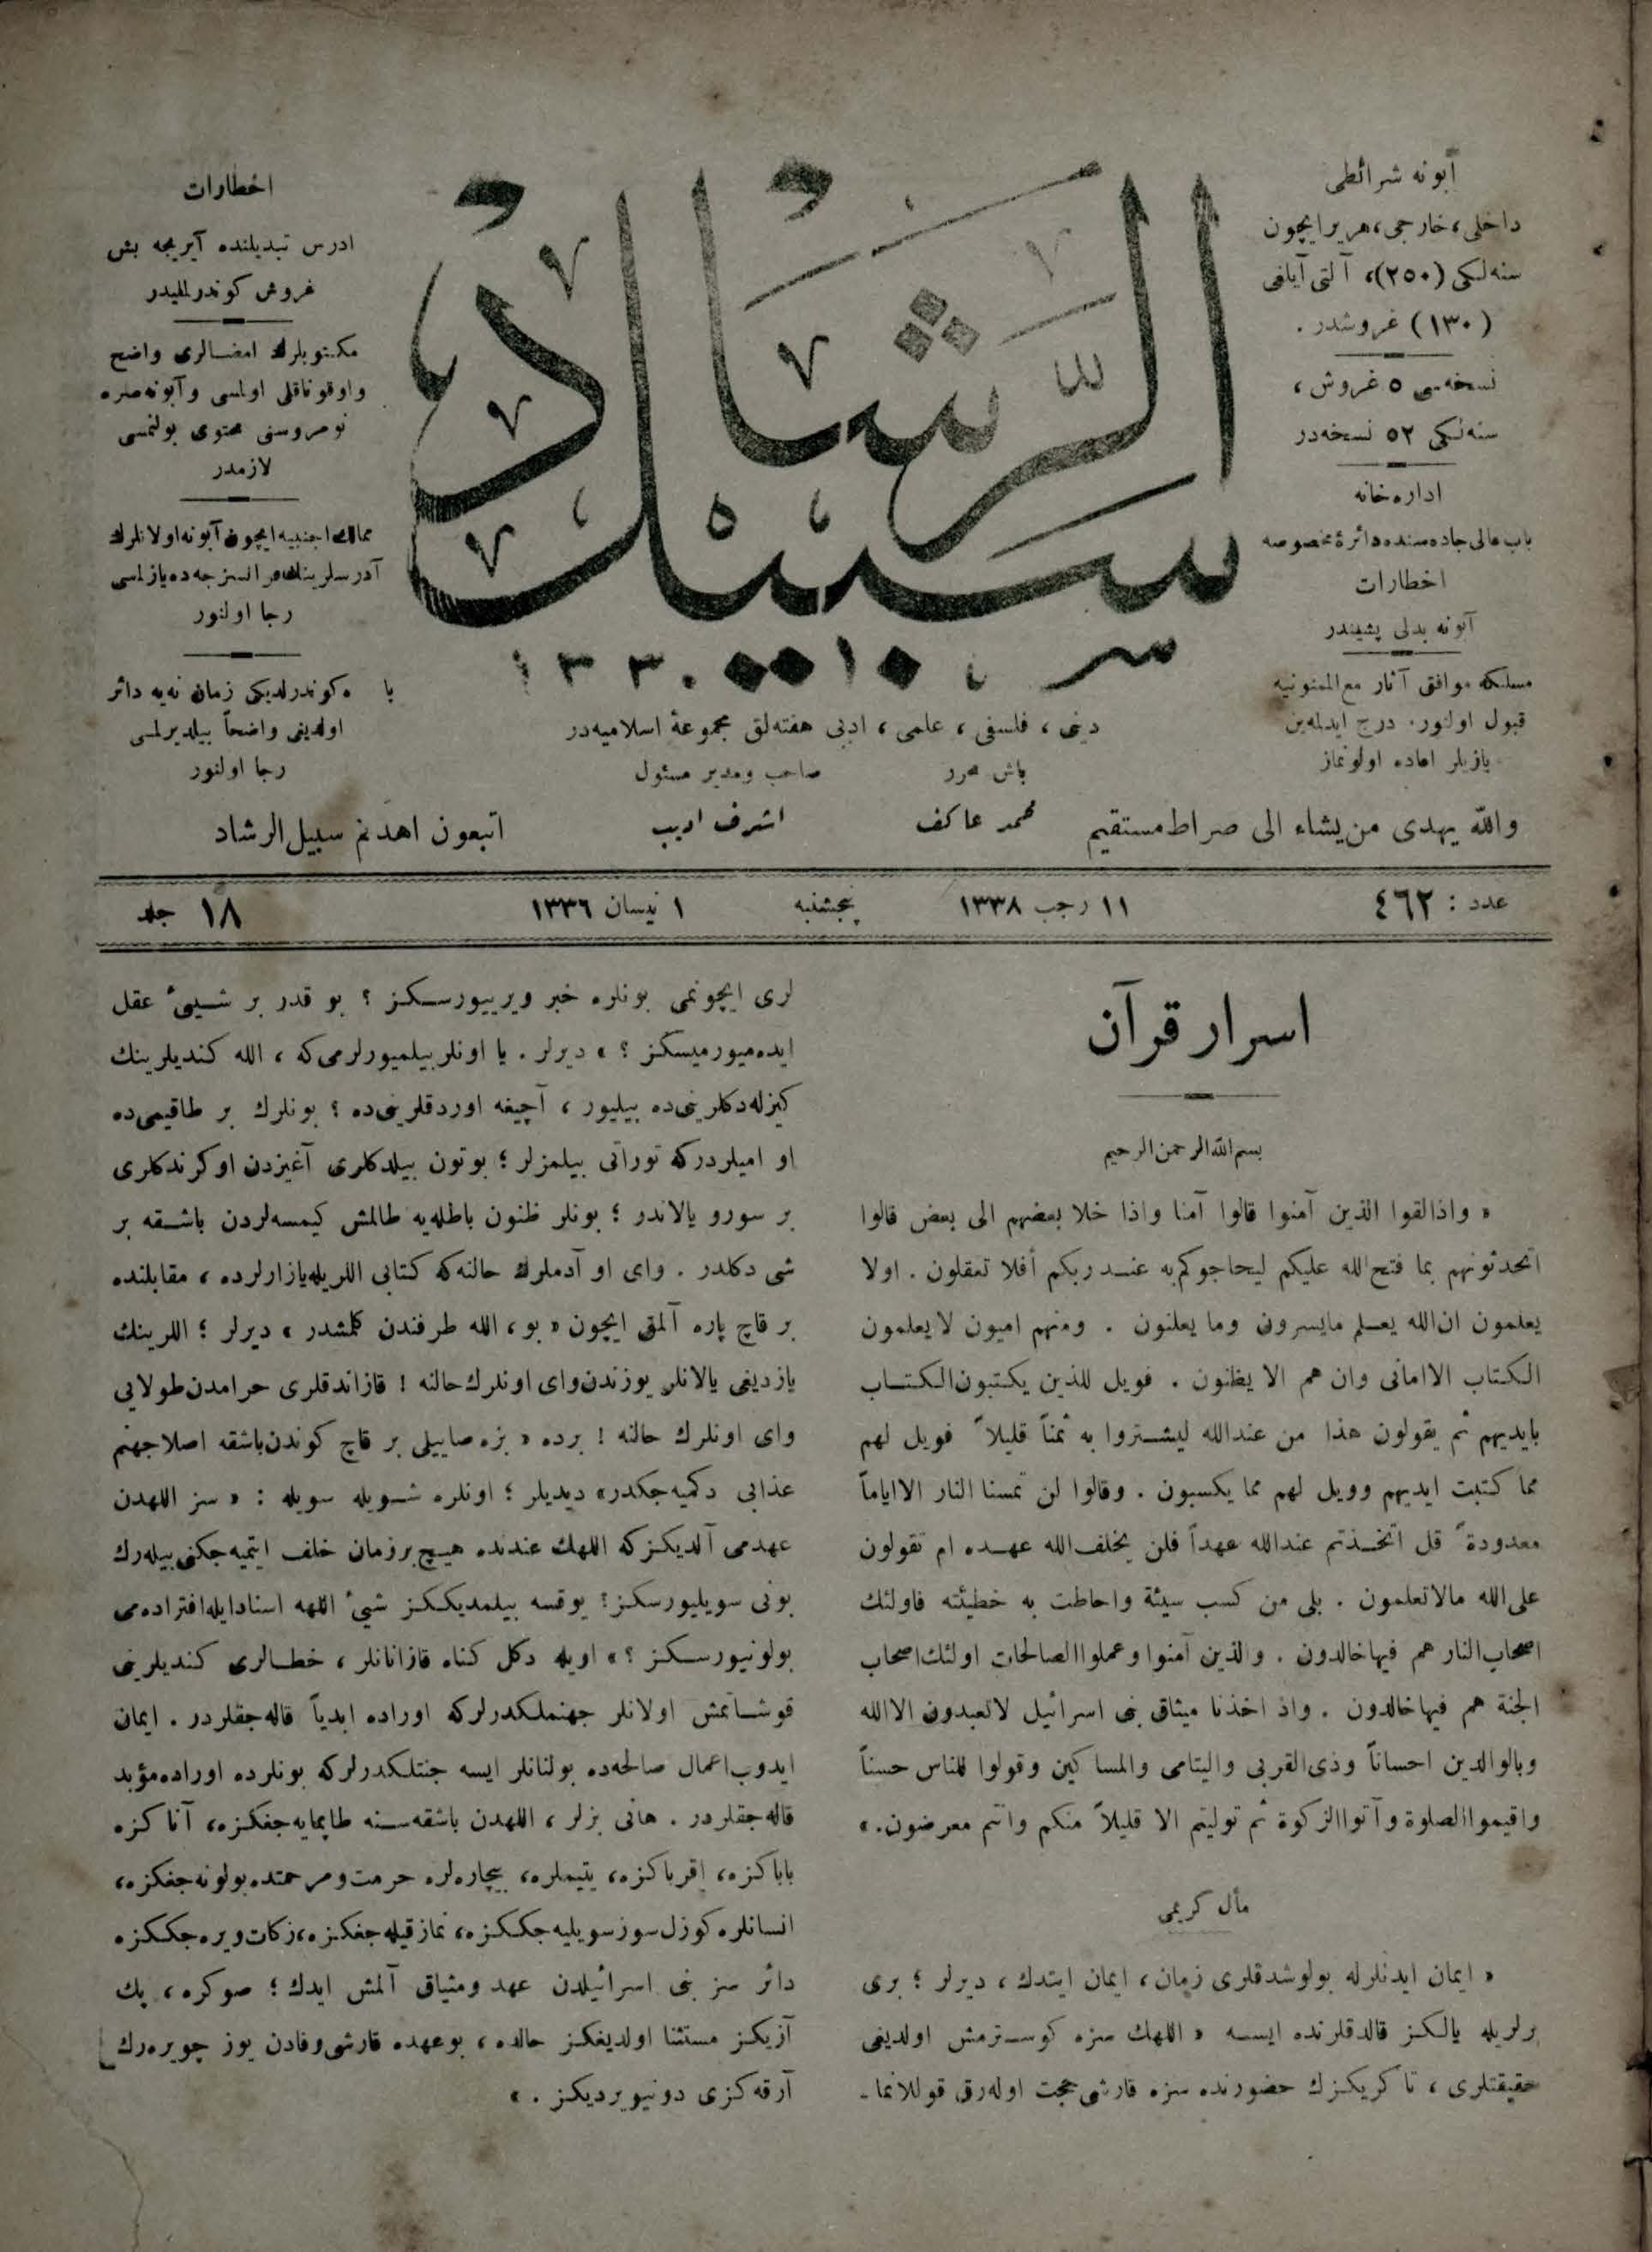 آبونه شرائطی
داخلی، خارجی، هر یر ایچون
سنه‌لکی (٢٥٠)، آلتی آیلغی
(١٣٠) غروشدر.
نسخه‌سی ٥ غروش،
سنه‌لکی ٥٢ نسخه‌در
اداره‌خانه
باب عالی جاده‌سنده دائرۀ مخصوصه
اخطارات
آبونه بدلی پشیندر
مسلکه موافق آثار مع الممنونیه
قبول اولنور. درج ایدلمه‌ین
یازیلر اعاده اولونماز
سبیل الرشاد
دینی، فلسفی، علمی، ادبی هفته‌لق مجموعۀ اسلامیه‌در
باش محرر
صاحب ومدیر مسئول
محمد عاکف
اشرف ادیب
اخطارات
ادرس تبدیلنده آیریجه بش
غروش کوندرلملیدر
مکتوبلرك امضالری واضح
واوقوناقلی اولمسی وآبونه صره
نومروسنی محتوی بولنمسی
لازمدر
ممالك اجنبیه ایچون آبونه اولانلرك
آدرسلرینك فرانسزجه ده یازلمسی
رجا اولنور
پاره کوندرلدیکی زمان نه‌یه دائر
اولدیغی واضحاً بیلدیرلمسی
رجا اولنور
والله یهدی من یشاء الی صراط مستقیم
اتبعون اهدکم سبیل الرشاد
عدد : ٤٦٢
١١ رجب ١٣٣٨
پنجشنبه
١ نیسان ١٣٣٦
جلد ١٨
اسرار قرآن
بسم الله الرحمن الرحیم
« واذا لقوا الذین آمنوا قالوا آمنا واذا خلا بعضهم الی بعض قالوا
اتحدثونهم بما فتح الله علیکم لیحاجوکم به عند ربکم أفلا تعقلون . اولا
یعلمون ان الله یعلم مایسرون وما یعلنون . ومنهم امیون لا یعلمون
الکتاب الا امانی وان هم الا یظنون . فویل للذین یکتبون الکتاب
بایدیهم ثم یقولون هذا من عندالله لیشتروا به ثمناً قلیلاً فویل لهم
مما کتبت ایدیهم وویل لهم مما یکسبون . وقالوا لن تمسنا النار الا ایاماً
معدودة ً قل اتخذتم عندالله عهداً فلن یخلف الله عهده ام تقولون
علی الله مالا تعلمون . بلی من کسب سیئة واحاطت به خطیئته فاولئك
اصحاب النار هم فیها خالدون . والذین آمنوا وعملوا الصالحات اولئك اصحاب
الجنة هم فیها خالدون . واذ اخذنا میثاق بنی اسرائیل لاتعبدون الا الله
وبالوالدین احساناً وذی القربی والیتامی والمساکین وقولوا للناس حسناً
واقیموا الصلوة وآتوا الزکوة ثم تولیتم الا قلیلاً منکم وانتم معرضون. »
مأل کریمی
« ایمان ایدنلرله بولوشدقلری زمان، ایمان ایتدك، دیرلر ؛ بری
برلریله یالکز قالدقلرنده ایسه « اللهك سزه کوسترمش اولدیغی
حقیقتلری، تا کریکزك حضورنده سزه قارشی حجت اوله‌رق قوللانما-
لری ایچونمی بونلره خبر ویرییورسکز ؟ بو قدر بر شیئ عقل
ایده‌میورمیسکز ؟ » دیرلر . یا اونلر بیلمیورلرمی که، الله کندیلرینك
کیزله‌دکلرینی ده بیلیور، آچیغه اوردقلرینی ده ؟ بونلرك بر طاقیمی ده
او امیلردرکه توراتی بیلمزلر ؛ بوتون بیلدکلری آغیزدن اوکرندکلری
بر سورو یالاندر ؛ بونلر ظنون باطله‌یه طالمش کیمسه‌لردن باشقه بر
شی دکلدر . وای او آدملرك حالنه که کتابی اللریله یازارلرده، مقابلنده
بر قاچ پاره آلمق ایچون « بو، الله طرفندن کلمشدر » دیرلر ؛ اللرینك
یازدیغی یالانلر یوزندن وای اونلرك حالنه ! قازاندقلری حرامدن طولایی
وای اونلرك حالنه ! برده « بزه صاییلی بر قاچ کوندن باشقه اصلا جهنم
عذابی دکمیه‌جکدر» دیدیلر ؛ اونلره شویله سویله : « سز اللهدن
عهدمی آلدیکزکه اللهك عندنده هیچ بر زمان خلف ایتمیه‌جکنی بیله‌رك
بونی سویلیورسکز؟ یوقسه بیلمدیککز شیئ اللهه اسناد ایله افتراده‌می
بولونیورسکز ؟ » اویله دکل کناه قازانانلر، خطالری کندیلرینی
قوشاتمش اولانلر جهنملکدرلرکه اوراده ابدیاً قاله‌جقلردر . ایمان
ایدوب اعمال صالحه‌ده بولنانلر ایسه جنتلکدرلرکه بونلرده اوراده مؤبد
قاله‌جقلردر . هانی بزلر، اللهدن باشقه‌سنه طاپمایه‌جغکزه، آناکزه
باباکزه، اقرباکزه، یتیملره، بیچاره‌لره حرمت ومرحمتده بولونه‌جغکزه،
انسانلره کوزل سوز سویلیه‌جککزه، نماز قیله‌جغکزه، زکات ویره‌جککزه
دائر سز بنی اسرائیلدن عهد ومیثاق آلمش ایدك ؛ صوکره، پك
آزیکز مستثنا اولدیغکز حالده، بو عهده قارشی وفادن یوز چویره‌رك
آرقه‌کزی دونیویردیکز . »